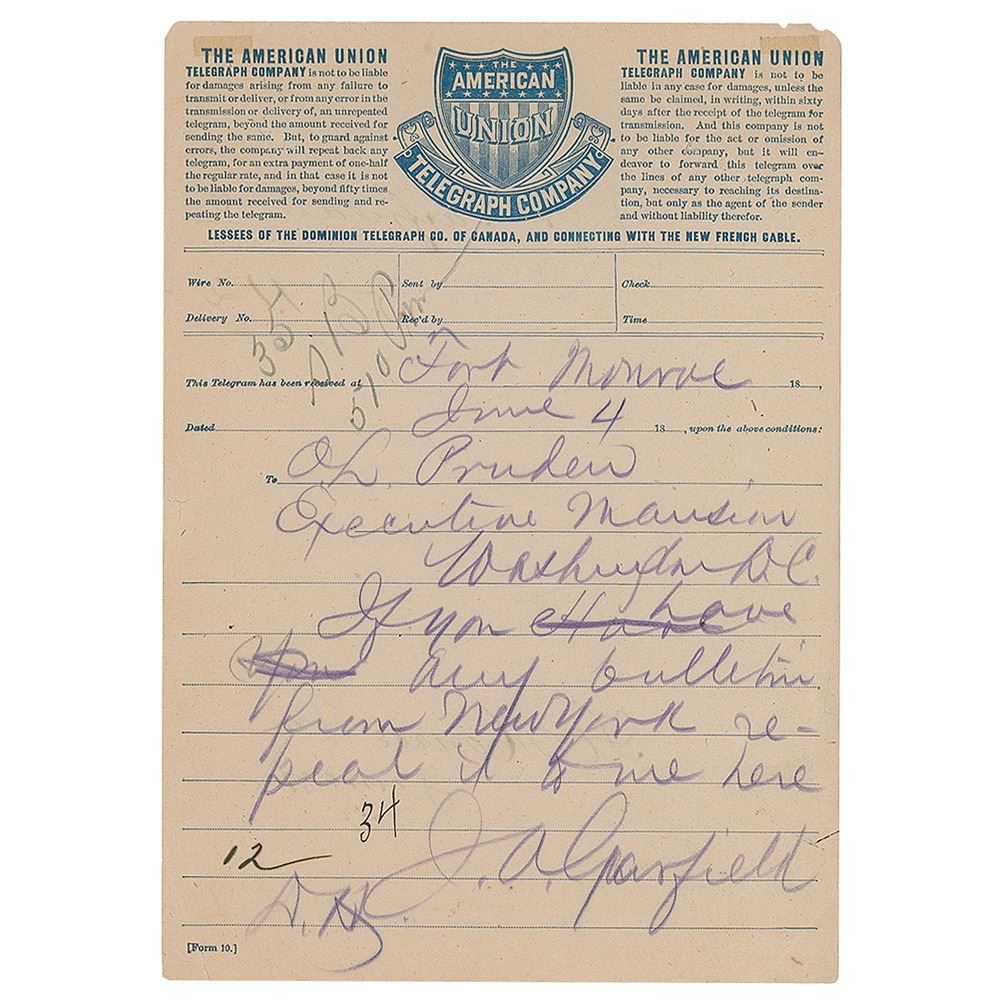 THE AMERICAN UNION
TELEGRAPH COMPANY is not to be liable
for damages arising from any failure to
transmit or deliver, or from any error in the
transmission or delivery of, an unrepeated
telegram, beyond the amount received for
sending the same. But, to guard against
errors, the company will repeat back any
telegram, for an extra payment of one-half
the regular rate, and in that case it is not
to be liable for damages, beyond fifty times
the amount received for sending and re-
peating the telegram.
THE
AMERICAN
UNION
TELEGRAPH COMPANY
THE AMERICAN UNION
TELEGRAPH COMPANY is not to be
liable in any case for damages, unless the
same be claimed, in writing, within sixty
days after the receipt of the telegram for
transmission. And this company is not
to be liable for the act or omission of
any other company, but it will en-
deavor to forward this telegram over
the lines of any other telegraph com-
pany, necessary to reaching its destina-
tion, but only as the agent of the sender
and without liability therefor.
LESSEES OF THE DOMINION TELEGRAPH CO. OF CANADA, AND CONNECTING WITH THE NEW FRENCH CABLE.
Wire No. Sent by Check
Delivery No. Rec'd by Time
35
510 Pm
This Telegram has been received at Fort Monroe 18 ,
Dated June 4 18 , upon the above conditions:
To O L Pruden
Executive Mansion
Washington D.C.
If you Have have
any bulletin
from New York re-
peat it to me here
34
12 J. A. Garfield
D.H.
[Form 10.]